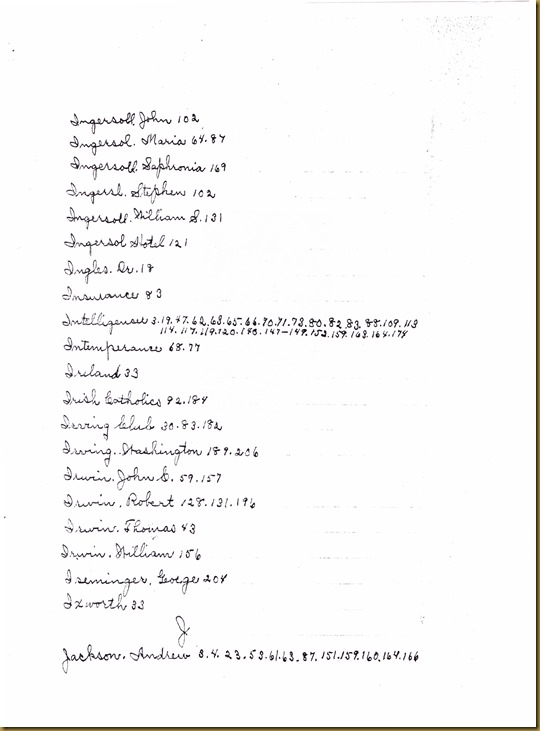 Ingersoll, John 102
Ingersol. Maria 64.87
Ingersoll. Sephronia 169
Ingersl. Stephen 102
Ingersoll. William S. 131
Ingersol Hotel 121
Ingles. Dr. 18
Insurance 83
Intelligenser 3.19.47.62.63.65.66.70.71.73.80.82.83.88.109.113
114.117.119.120.140.147-149.153.159.163.164.174
Intemperance 68.77
Ireland 33
Irish Catholics 92.184
Irving Club 30.83.182
Irving. Washington 189.206
Irwin. John C. 59.157
Irwin, Robert 128.131.196
Irwin. Thomas 43
Irwin. William 156
Iseminger, George 204
Ixworth 33
J
Jackson. Andrew 3.4.23.53.61.63.87.151.159.160.164.166